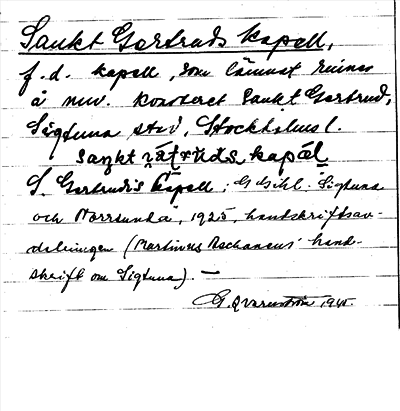 Sankt Gertruds kapell,
f.d. kapell, som lämnat ruiner
å nuv. kvarteret Sankt Gertrud,
Sigtuna stad, Stockholms l.
Sankt kapäl
S. Gertrudis Kapell; G Gihl. Sigtuna
och Norrsunda, 1925, handskriftsav-
delningen (Martinus Aschaneus' hand-
skrift om Sigtuna). —
G. Qvarnström 1945.